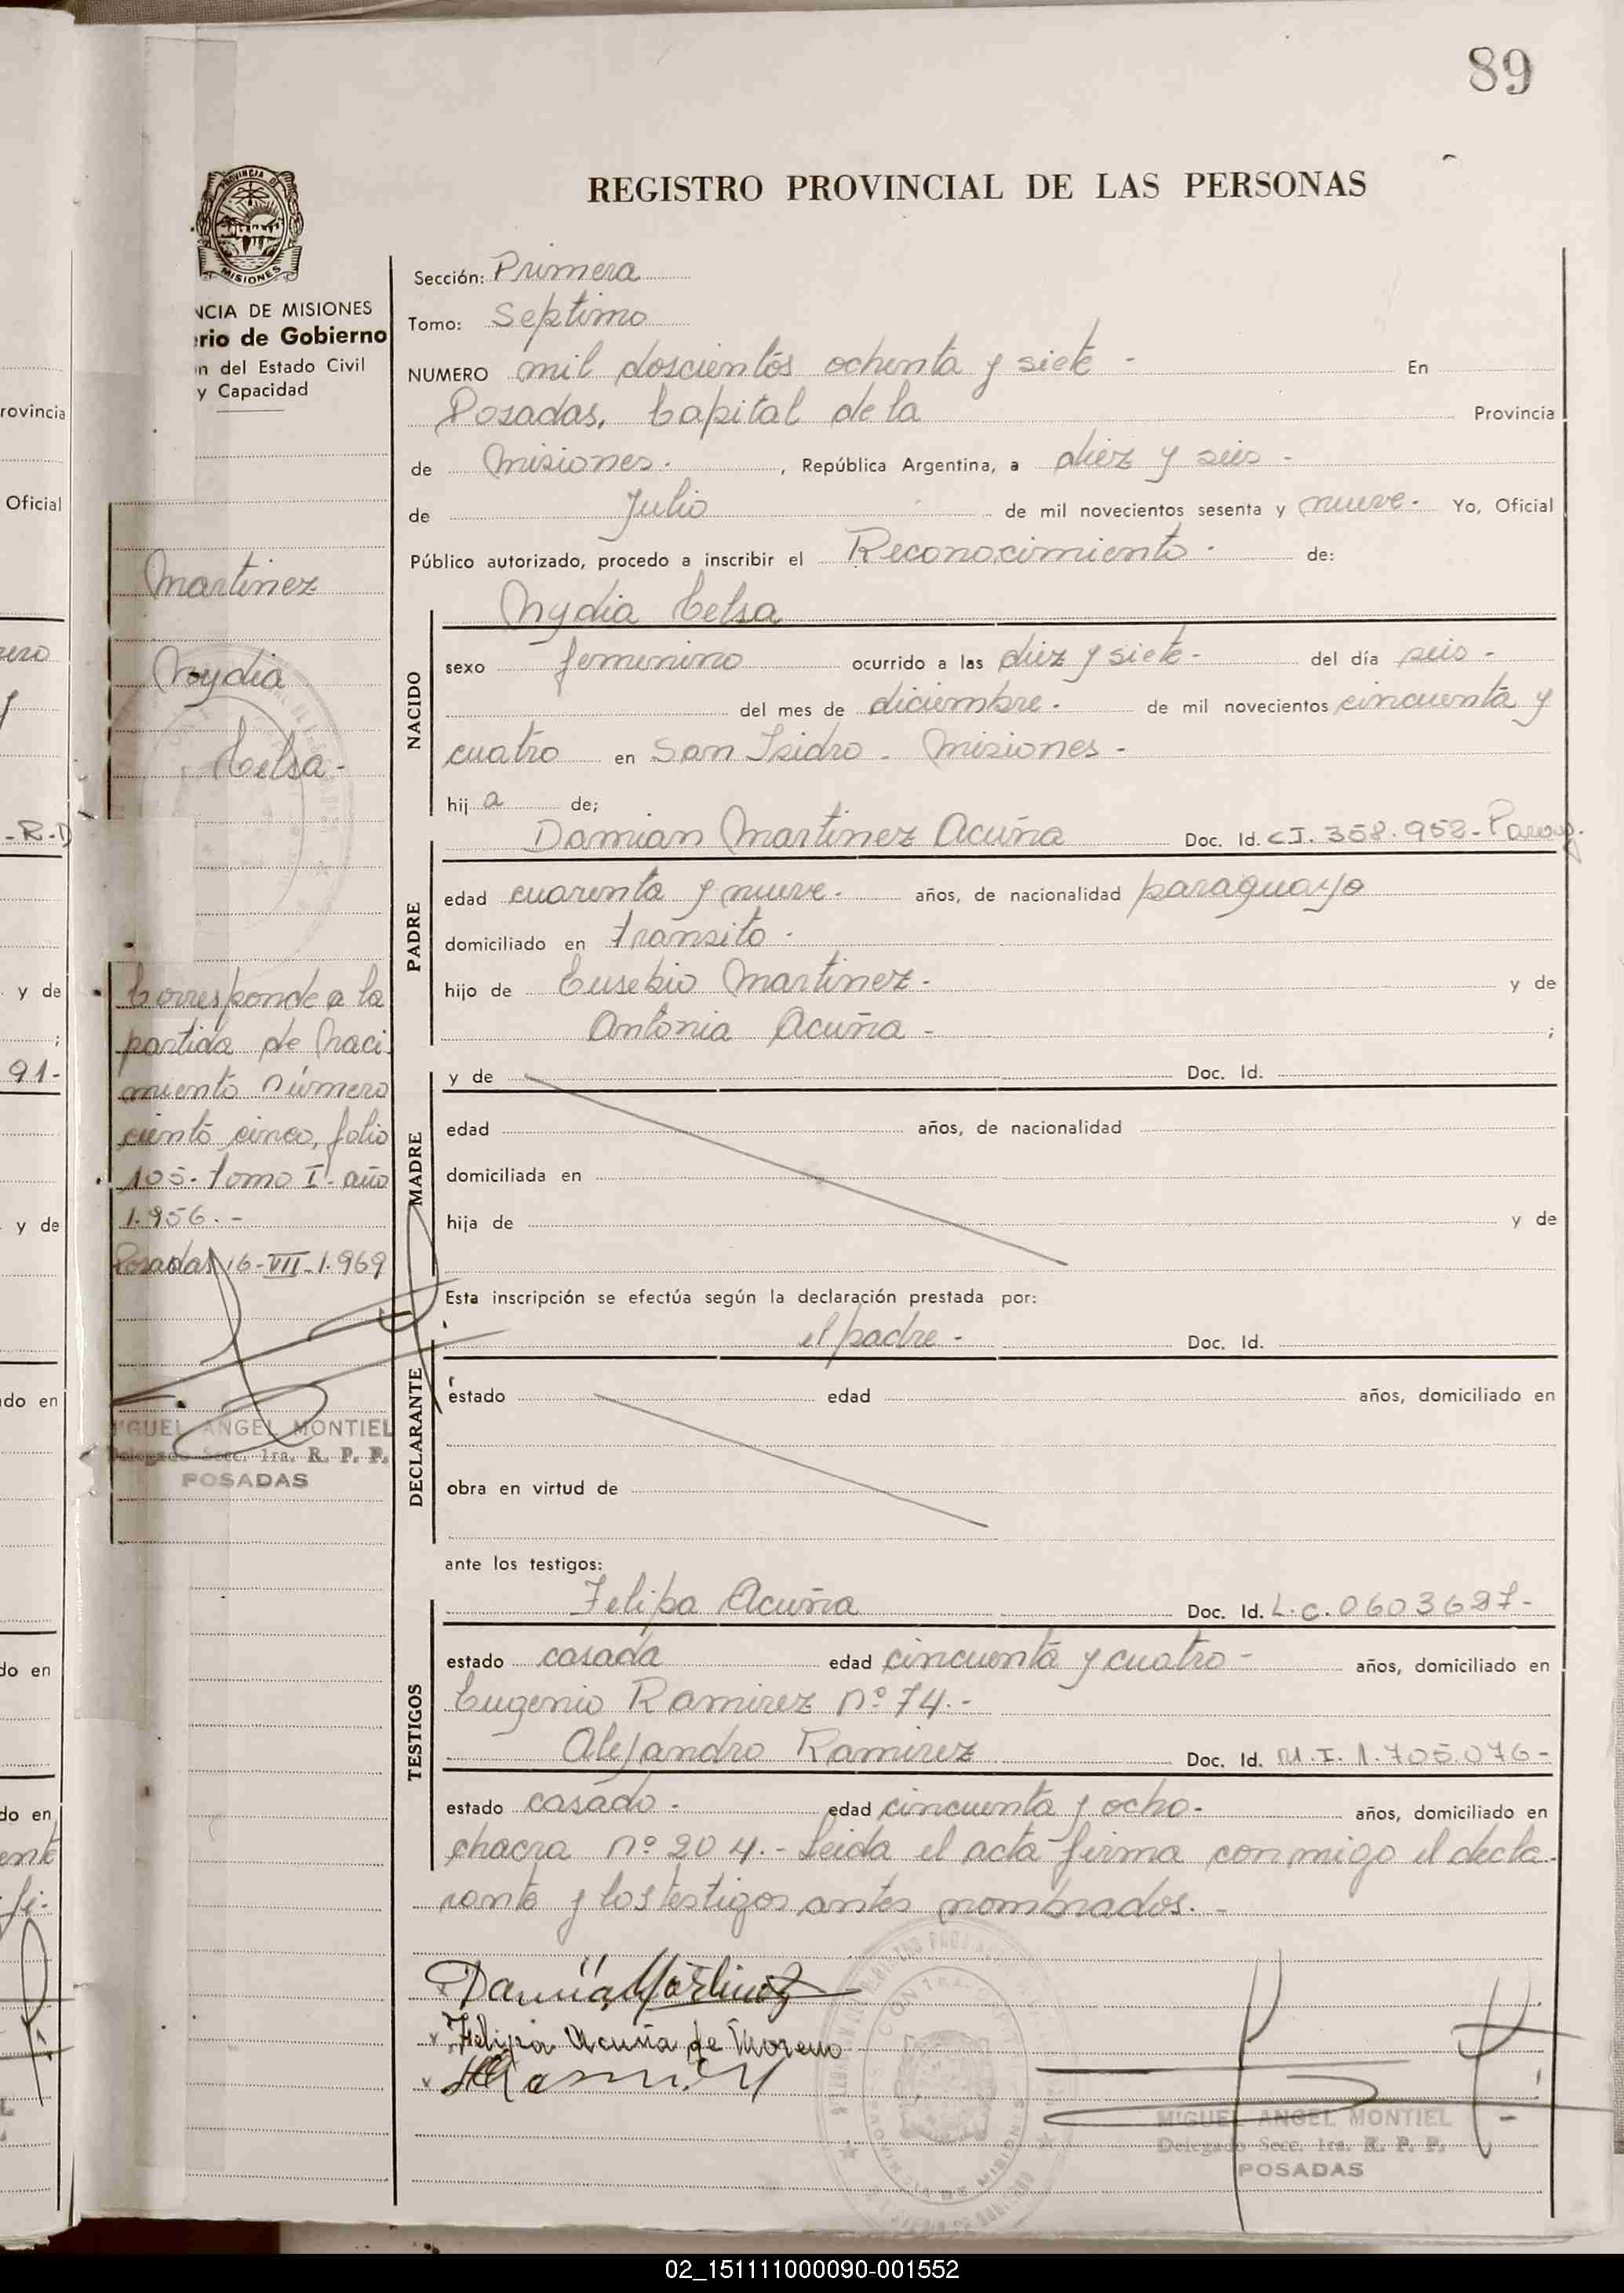 89
REGISTRO PROVINCIAL DE LAS PERSONAS
MISIONES
NCIA DE MISIONES
rio de Gobierno
n del Estado Civil
y Capacidad
Sección: Primera
Tomo: Septimo
NUMERO mil doscientos ochenta y siete - En
Posadas, Capital de la Provincia
de Misiones. , República Argentina, a diez y seis -
de Julio de mil novecientos sesenta y nueve - Yo, Oficial
Público autorizado, procedo a inscribir el Reconocimiento - de:
Nydia Celsa
NACIDO
sexo femenino ocurrido a las diez y siete - del día seis -
del mes de diciembre - de mil novecientos cincuenta y
cuatro en San Isidro - Misiones -
hij a de;
Damian Martinez Acuña Doc. Id. C.I. 358.952 - Parag.
PADRE
edad cuarenta y nueve - años, de nacionalidad paraguayo
domiciliado en transito -
hijo de Eusebio Martinez - y de
Antonia Acuña - ;
MADRE
y de Doc. Id.
edad años, de nacionalidad
domiciliada en
hija de y de
Esta inscripción se efectúa según la declaración prestada por:
el padre - Doc. Id.
DECLARANTE
estado edad años, domiciliado en
obra en virtud de
ante los testigos:
Felipa Acuña Doc. Id. L.C. 0603697 -
TESTIGOS
estado casada edad cincuenta y cuatro - años, domiciliado en
Eugenio Ramirez nº 74. -
Alejandro Ramirez Doc. Id. M.I. 1.705.076 -
estado casado - edad cincuenta y ocho - años, domiciliado en
chacra nº 204. - Leida el acta firma conmigo el decla-
rante y los testigos antes nombrados. -
Damian Martinez
Felipa Acuña de Moreno
MIGUEL ANGEL MONTIEL
Delegado Secc. 1ra. R. P. P.
POSADAS
Martinez
Nydia
Celsa -
Corresponde a la
partida de Naci-
miento número
ciento cinco, folio
105 - Tomo I - año
1.956. -
Posadas 16 - VII - 1.969
MIGUEL ANGEL MONTIEL
Delegado Secc. 1ra. R. P. P.
POSADAS
rovincia
Oficial
- R. D
y de
;
91 -
y de
do en
do en
do en
02_151111000090-001552